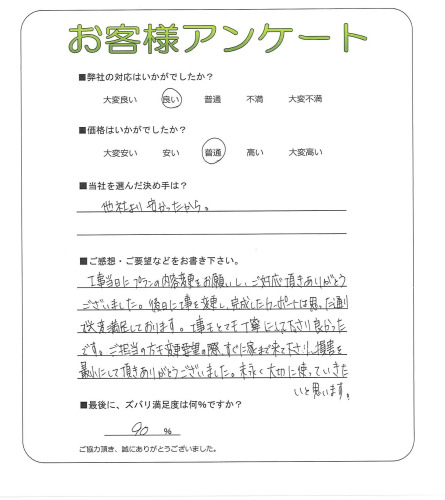 お客様アンケート
■弊社の対応はいかがでしたか？
大変良い 良い 普通 不満 大変不満
■価格はいかがでしたか？
大変安い 安い 普通 高い 大変高い
■当社を選んだ決め手は？
他社より安かったから。
■ご感想・ご要望などをお書き下さい。
工事当日にプランの内容変更をお願いし、ご対応頂きありがとう
ございました。後日に工事を変更し、完成したカーポートは思った通り
で大変満足しております。工事もとても丁寧にして下さり良かった
です。ご担当の方も変更要望の際、すぐに家まで来て下さり、損害を
最小にして頂きありがとうございました。末永く大切に使っていきた
いと思います。
■最後に、ズバリ満足度は何％ですか？
90 ％
ご協力頂き、誠にありがとうございました。